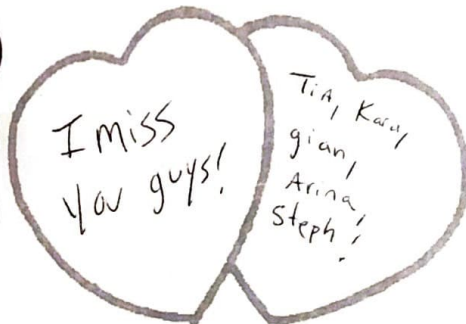 I miss
You guys!
Tia, Kara,
gian,
Arina,
Steph!